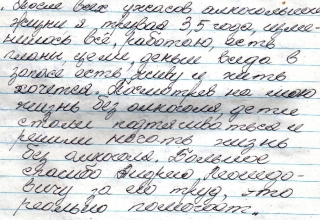 . После всех ужасов алкогольной
жизни я трезвая 3,5 года, изме-
нилось всё, работаю, есть
планы цели, деньги всегда в
запасе есть, живу и жить
хочется. Посмотрев на мою
жизнь без алкоголя, дети
стали подтягиваться и
решили начать жизнь
без алкоголя. Большое
спасибо Андрею Леонидо-
вичу за его труд, это
реально помогает.